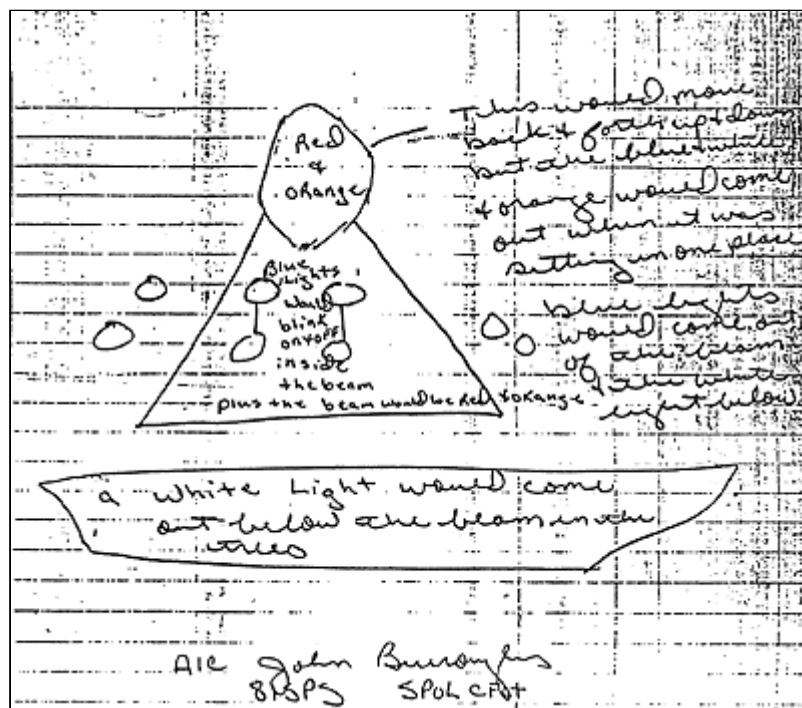 Red
&
oRange
This would move
back & forth up & down
but the blue & white
& orange would come
out when it was
setting in one place
Blue
Lights
would
blink
on & off
inside
the beam
plus the beam would be Red & oRange
blue lights
would come out
of the beam
& the white
light below
a white Light would come
out below the beam in the
trees
A1C John Burroughs
81SPS